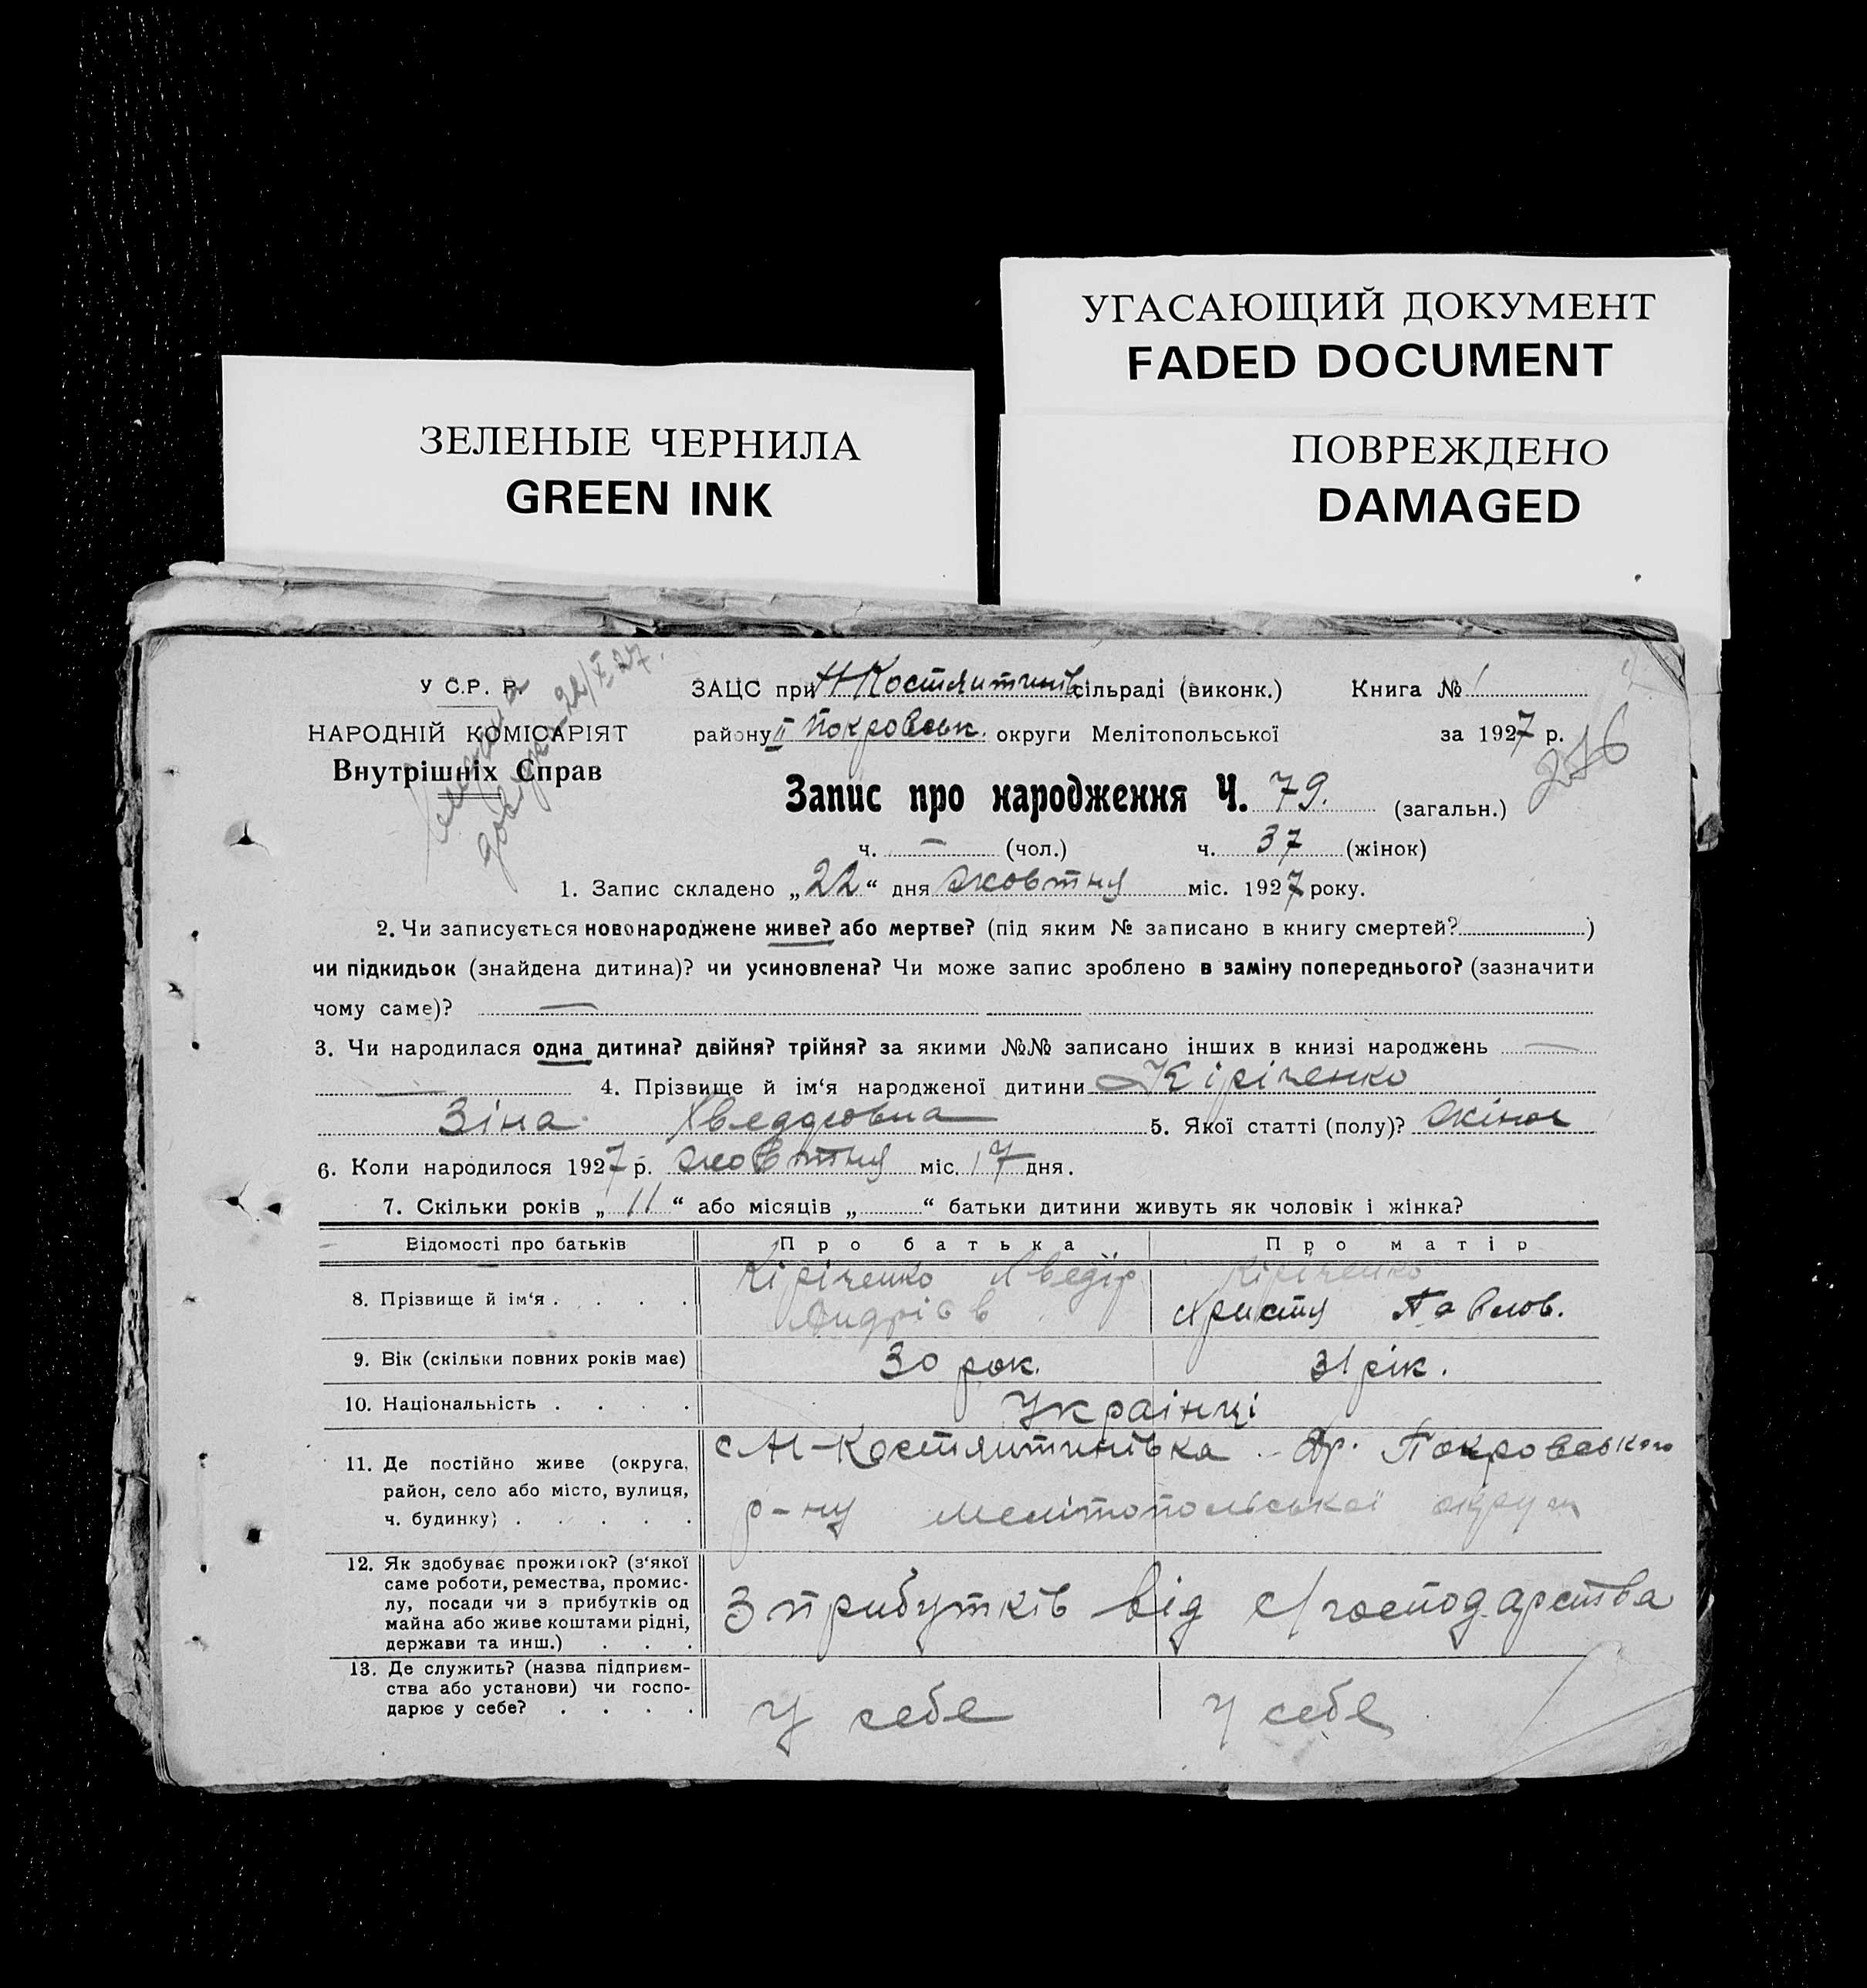 УГАСАЮЩИЙ ДОКУМЕНТ
FADED DOCUMENT
ЗЕЛЕНЫЕ ЧЕРНИЛА
GREEN INK
ПОВРЕЖДЕНО
DAMAGED
У С.Р. Р.
НАРОДНІЙ КОМІСАРІЯТ
Внутрішніх Справ
22/X 27.
ЗАЦС при Н Костянтинів сільраді (виконк.) Книга № 1
району ІІ Покровськ. округи Мелітопольської за 1927 р.
Запис про народження Ч. 79. (загальн.)
ч. — (чол.) ч. 37 (жінок)
1. Запис складено „22“ дня жовтня міс. 1927 року.
2. Чи записується новонароджене живе? або мертве? (під яким № записано в книгу смертей? )
чи підкидьок (знайдена дитина)? чи усиновлена? Чи може запис зроблено в заміну попереднього? (зазначити
чому саме)? —
3. Чи народилася одна дитина? двійня? трійня? за якими №№ записано інших в книзі народжень —
— 4. Прізвище й ім‘я народженої дитини Кіріченко
Зіна Хведоровна 5. Якої статті (полу)? жіноч
6. Коли народилося 1927 р. жовтня міс. 17 дня.
7. Скільки років „11“ або місяців „ “ батьки дитини живуть як чоловік і жінка?
Відомості про батьків Про батька Про матір
8. Прізвище й ім‘я . . . . Кіріченко Хведір Кіріченко
Андріев Христя Павлов.
9. Вік (скільки повних років має) 30 рок. 31 рік.
10. Національність . . . . Українці
11. Де постійно живе (округа, район, село або місто, вулиця, ч. будинку) . . . . .
с Н-Костянтинівка Покровського
р-ну мелітопольської округи
12. Як здобуває прожиток? (з‘якої саме роботи, ремества, промислу, посади чи з прибутків од майна або живе коштами рідні, держави та инш.) . . .
З прибутків від с/господарства
13. Де служить? (назва підприємства або установи) чи господарює у себе? . . . .
У себе У себе